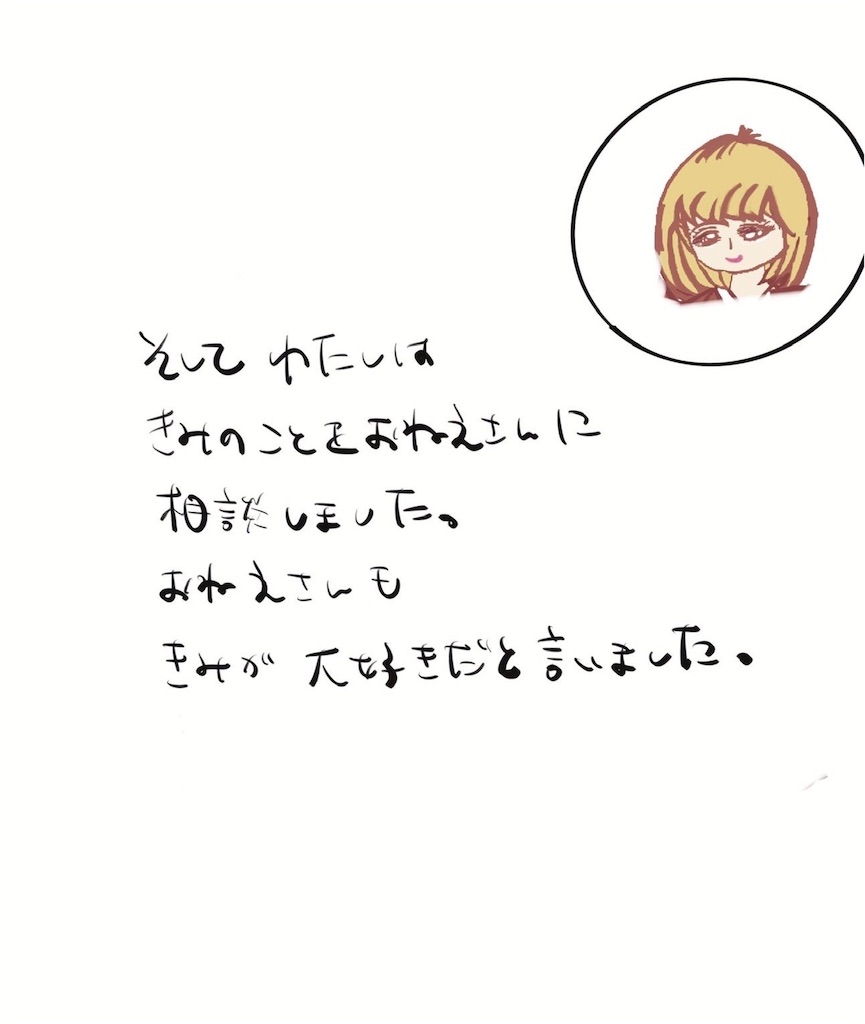 そして わたしは
きみのことをおねえさんに
相談しました。
おねえさんも
きみが 大好きだと言いました。